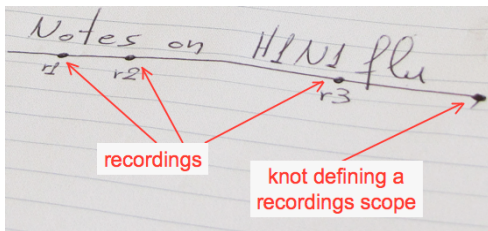 Notes on H1N1 flu
r1 r2 r3
recordings
knot defining a
recordings scope